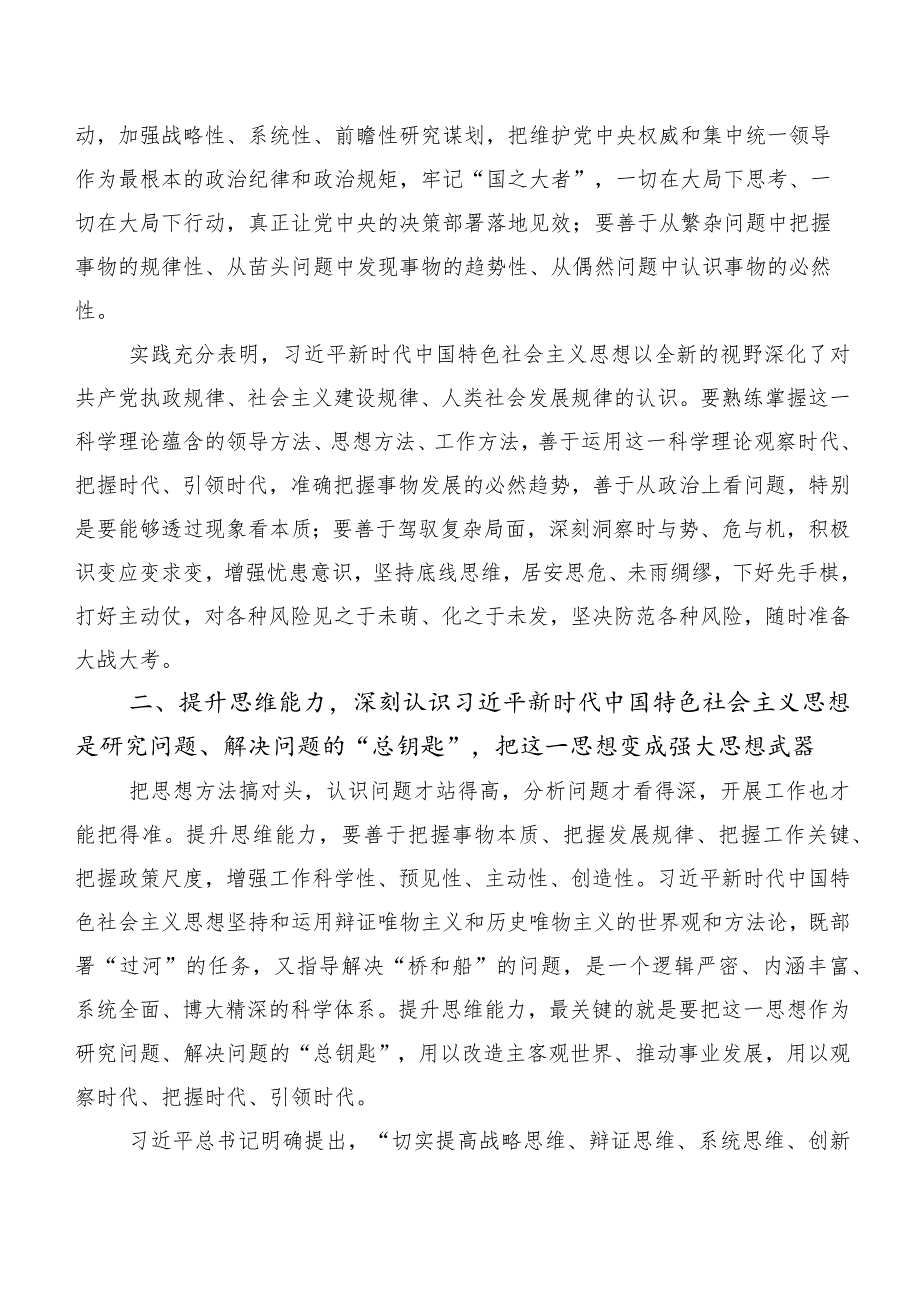 动，加强战略性、系统性、前瞻性研究谋划，把维护党中央权威和集中统一领导
作为最根本的政治纪律和政治规矩，牢记“国之大者”，一切在大局下思考、一
切在大局下行动，真正让党中央的决策部署落地见效；要善于从繁杂问题中把握
事物的规律性、从苗头问题中发现事物的趋势性、从偶然问题中认识事物的必然
性。
实践充分表明，习近平新时代中国特色社会主义思想以全新的视野深化了对
共产党执政规律、社会主义建设规律、人类社会发展规律的认识。要熟练掌握这一
科学理论蕴含的领导方法、思想方法、工作方法，善于运用这一科学理论观察时代、
把握时代、引领时代，准确把握事物发展的必然趋势，善于从政治上看问题，特别
是要能够透过现象看本质；要善于驾驭复杂局面，深刻洞察时与势、危与机，积极
识变应变求变，增强忧患意识，坚持底线思维，居安思危、未雨绸缪，下好先手棋，
打好主动仗，对各种风险见之于未萌、化之于未发，坚决防范各种风险，随时准备
大战大考。
二、提升思维能力，深刻认识习近平新时代中国特色社会主义思想
是研究问题、解决问题的“总钥匙”，把这一思想变成强大思想武器
把思想方法搞对头，认识问题才站得高，分析问题才看得深，开展工作也才
能把得准。提升思维能力，要善于把握事物本质、把握发展规律、把握工作关键、
把握政策尺度，增强工作科学性、预见性、主动性、创造性。习近平新时代中国特
色社会主义思想坚持和运用辩证唯物主义和历史唯物主义的世界观和方法论，既部
署“过河”的任务，又指导解决“桥和船”的问题，是一个逻辑严密、内涵丰富、
系统全面、博大精深的科学体系。提升思维能力，最关键的就是要把这一思想作为
研究问题、解决问题的“总钥匙”，用以改造主客观世界、推动事业发展，用以观
察时代、把握时代、引领时代。
习近平总书记明确提出，“切实提高战略思维、辩证思维、系统思维、创新